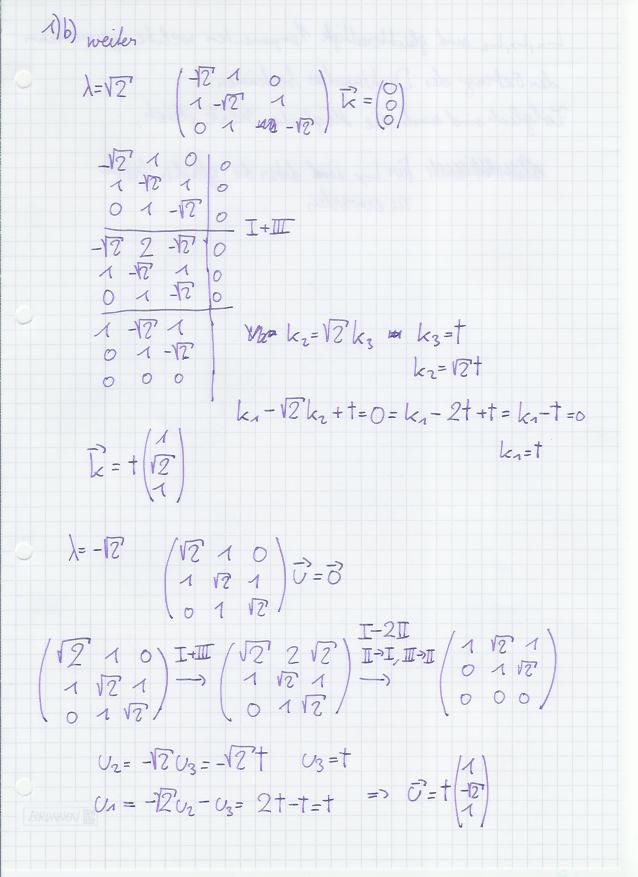 1)b) weiter
λ=√2 (-√2 1 0; 1 -√2 1; 0 1 -√2) k⃗ = (0; 0; 0)
-√2 1 0 | 0
1 -√2 1 | 0
0 1 -√2 | 0
I+III
-√2 2 -√2 | 0
1 -√2 1 | 0
0 1 -√2 | 0
1 -√2 1 |
0 1 -√2 |
0 0 0 |
k₂=√2 k₃ k₃=t
k₂=√2 t
k₁-√2 k₂+t=0=k₁-2t+t=k₁-t=0
k₁=t
k⃗ = t (1; √2; 1)
λ=-√2 (√2 1 0; 1 √2 1; 0 1 √2) v⃗=0⃗
(√2 1 0; 1 √2 1; 0 1 √2) I+III → (√2 2 √2; 1 √2 1; 0 1 √2) I-2II II→I, III→II → (1 √2 1; 0 1 √2; 0 0 0)
v₂= -√2 v₃=-√2 t v₃=t
v₁ = -√2 v₂-v₃= 2t-t=t => v⃗=t (1; -√2; 1)